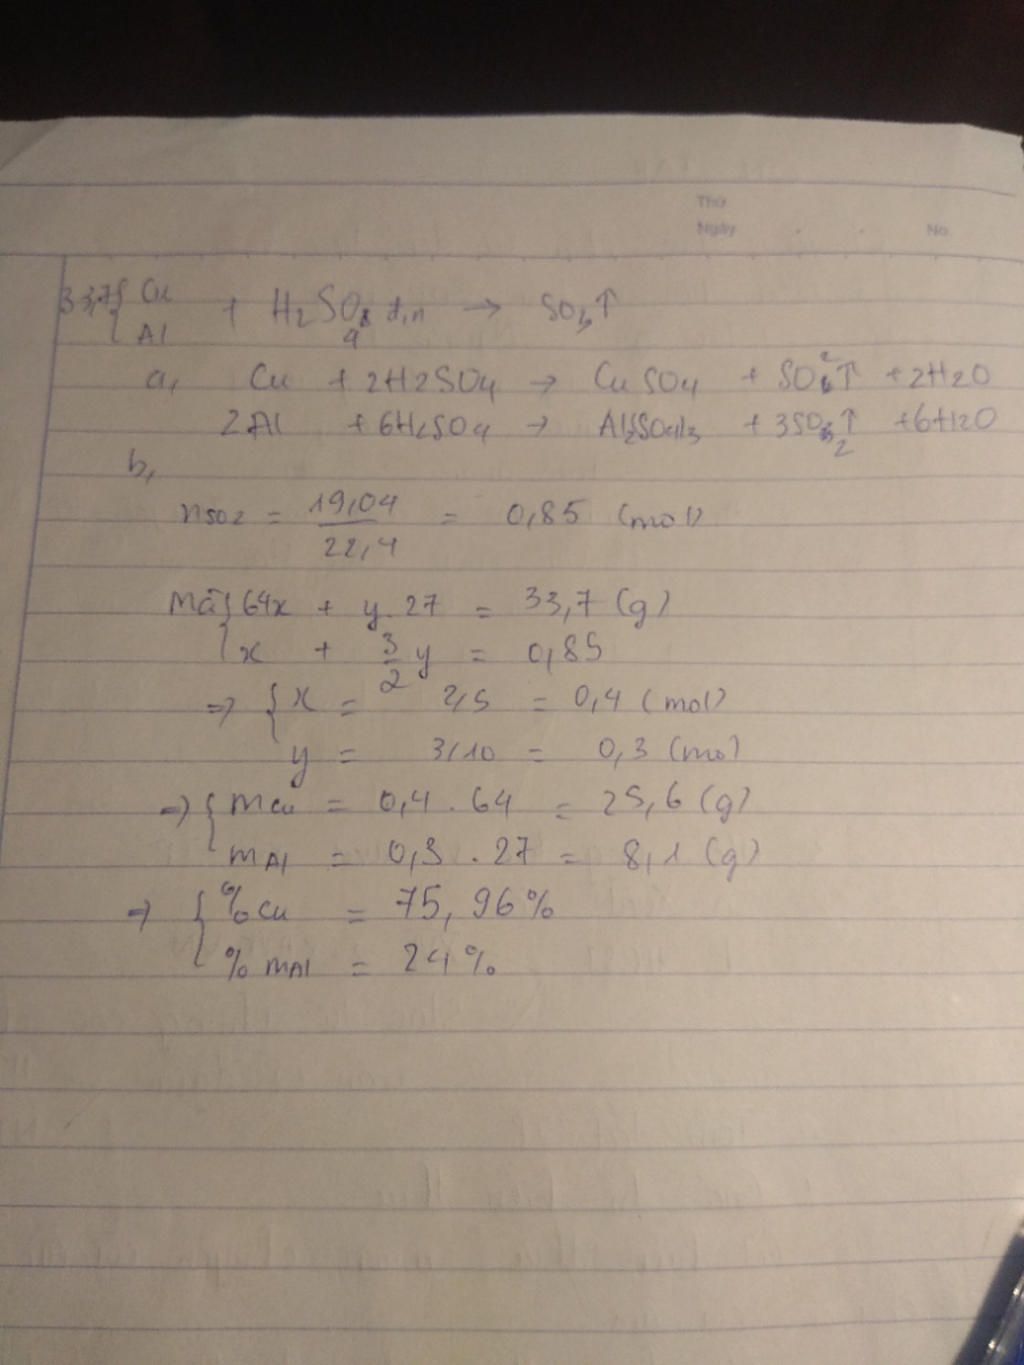 Thứ
Ngày No.
33,7 { Cu
Al + H2SO4 đ,n → SO2↑
a, Cu + 2H2SO4 → CuSO4 + SO2↑ + 2H2O
2Al + 6H2SO4 → Al2(SO4)3 + 3SO2↑ + 6H2O
b,
nSO2 = 19,04 / 22,4 = 0,85 (mol)
{ 64x + y.27 = 33,7 (g)
x + 3/2 y = 0,85
=> { x = 2/5 = 0,4 (mol)
y = 3/10 = 0,3 (mol)
=> { mCu = 0,4 . 64 = 25,6 (g)
mAl = 0,3 . 27 = 8,1 (g)
=> { %Cu = 75,96%
% mAl = 24%